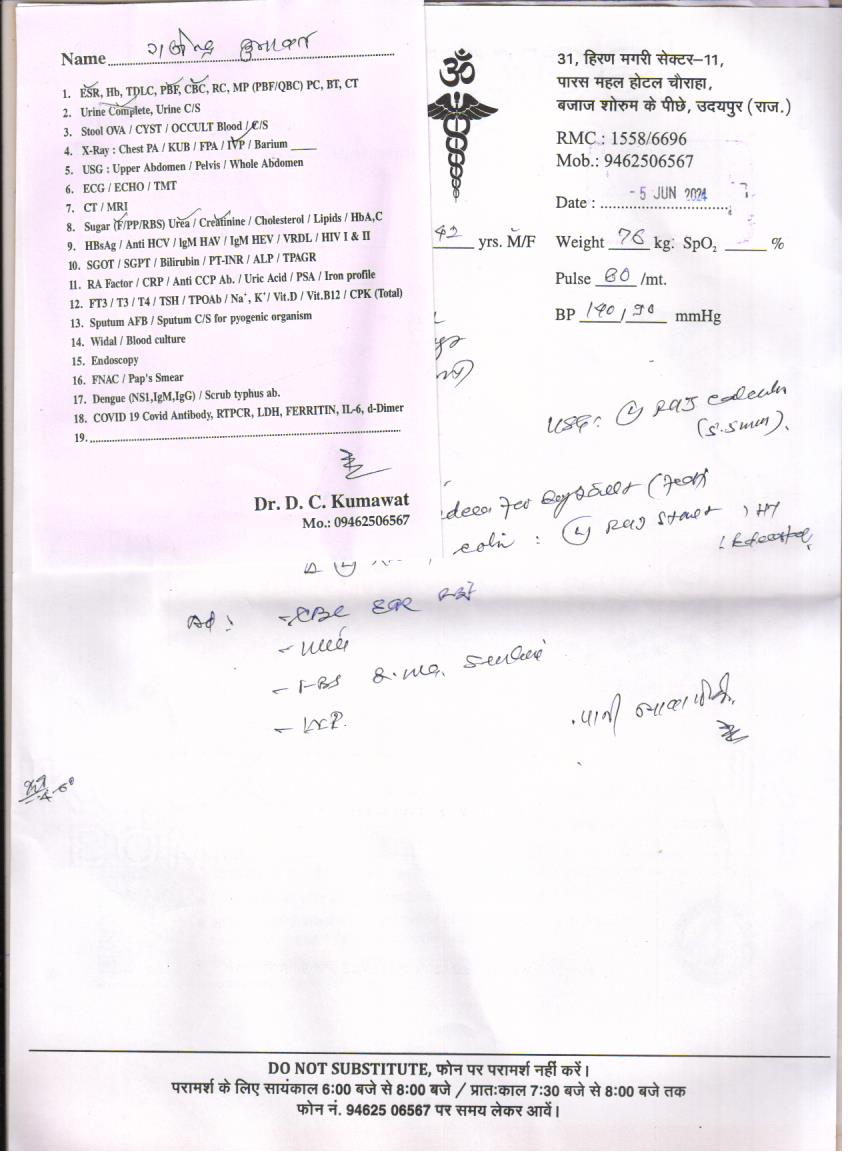 Name
1. ESR, Hb, TDLC, PBF, CBC, RC, MP (PBF/QBC) PC, BT, CT
2. Urine Complete, Urine C/S
3. Stool OVA / CYST / OCCULT Blood / C/S
4. X-Ray : Chest PA / KUB / FPA / IVP / Barium
5. USG : Upper Abdomen / Pelvis / Whole Abdomen
6. ECG / ECHO / TMT
7. CT / MRI
8. Sugar (F/PP/RBS) Urea / Creatinine / Cholesterol / Lipids / HbA,C
9. HBsAg / Anti HCV / IgM HAV / IgM HEV / VRDL / HIV I & II
10. SGOT / SGPT / Bilirubin / PT-INR / ALP / TPAGR
11. RA Factor / CRP / Anti CCP Ab. / Uric Acid / PSA / Iron profile
12. FT3 / T3 / T4 / TSH / TPOAb / Na⁺, K⁺/ Vit.D / Vit.B12 / CPK (Total)
13. Sputum AFB / Sputum C/S for pyogenic organism
14. Widal / Blood culture
15. Endoscopy
16. FNAC / Pap's Smear
17. Dengue (NS1,IgM,IgG) / Scrub typhus ab.
18. COVID 19 Covid Antibody, RTPCR, LDH, FERRITIN, IL-6, d-Dimer
19.
Dr. D. C. Kumawat
Mo.: 09462506567
ॐ
31, हिरण मगरी सेक्टर–11,
पारस महल होटल चौराहा,
बजाज शोरुम के पीछे, उदयपुर (राज.)
RMC : 1558/6696
Mob.: 9462506567
Date : - 5 JUN 2024
42 yrs. M/F Weight 76 kg. SpO₂ %
Pulse 80 /mt.
BP 140/90 mmHg
USG:
CBC ESR
FBS
DO NOT SUBSTITUTE, फोन पर परामर्श नहीं करें।
परामर्श के लिए सायंकाल 6:00 बजे से 8:00 बजे / प्रातःकाल 7:30 बजे से 8:00 बजे तक
फोन नं. 94625 06567 पर समय लेकर आवें।